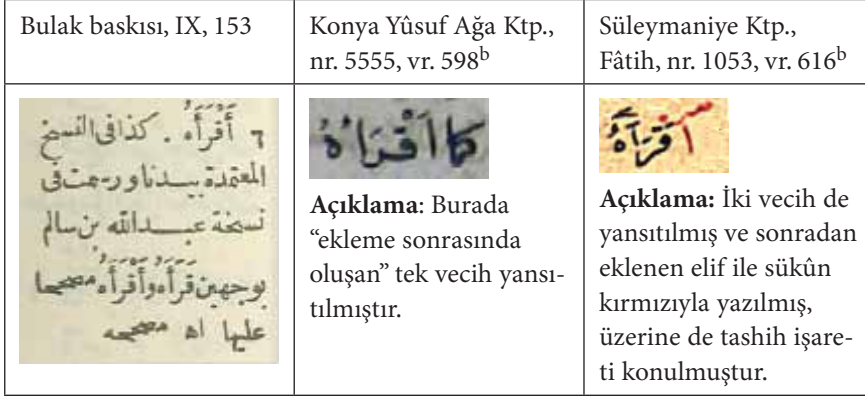 Bulak baskısı, IX, 153
Konya Yûsuf Ağa Ktp.,
nr. 5555, vr. 598b
Süleymaniye Ktp.,
Fâtih, nr. 1053, vr. 616b
٦ أقرأه . كذا في النسخ
المعتمدة بيدنا ورسمت في
نسخة عبد الله بن سالم
بوجهين قرأه وأقرأه مصححا
عليها اه مصححه
كما اَقْرَاَهُ
Açıklama: Burada
“ekleme sonrasında
oluşan” tek vecih yansı-
tılmıştır.
أَقْرَأَهُ
Açıklama: İki vecih de
yansıtılmış ve sonradan
eklenen elif ile sükûn
kırmızıyla yazılmış,
üzerine de tashih işare-
ti konulmuştur.